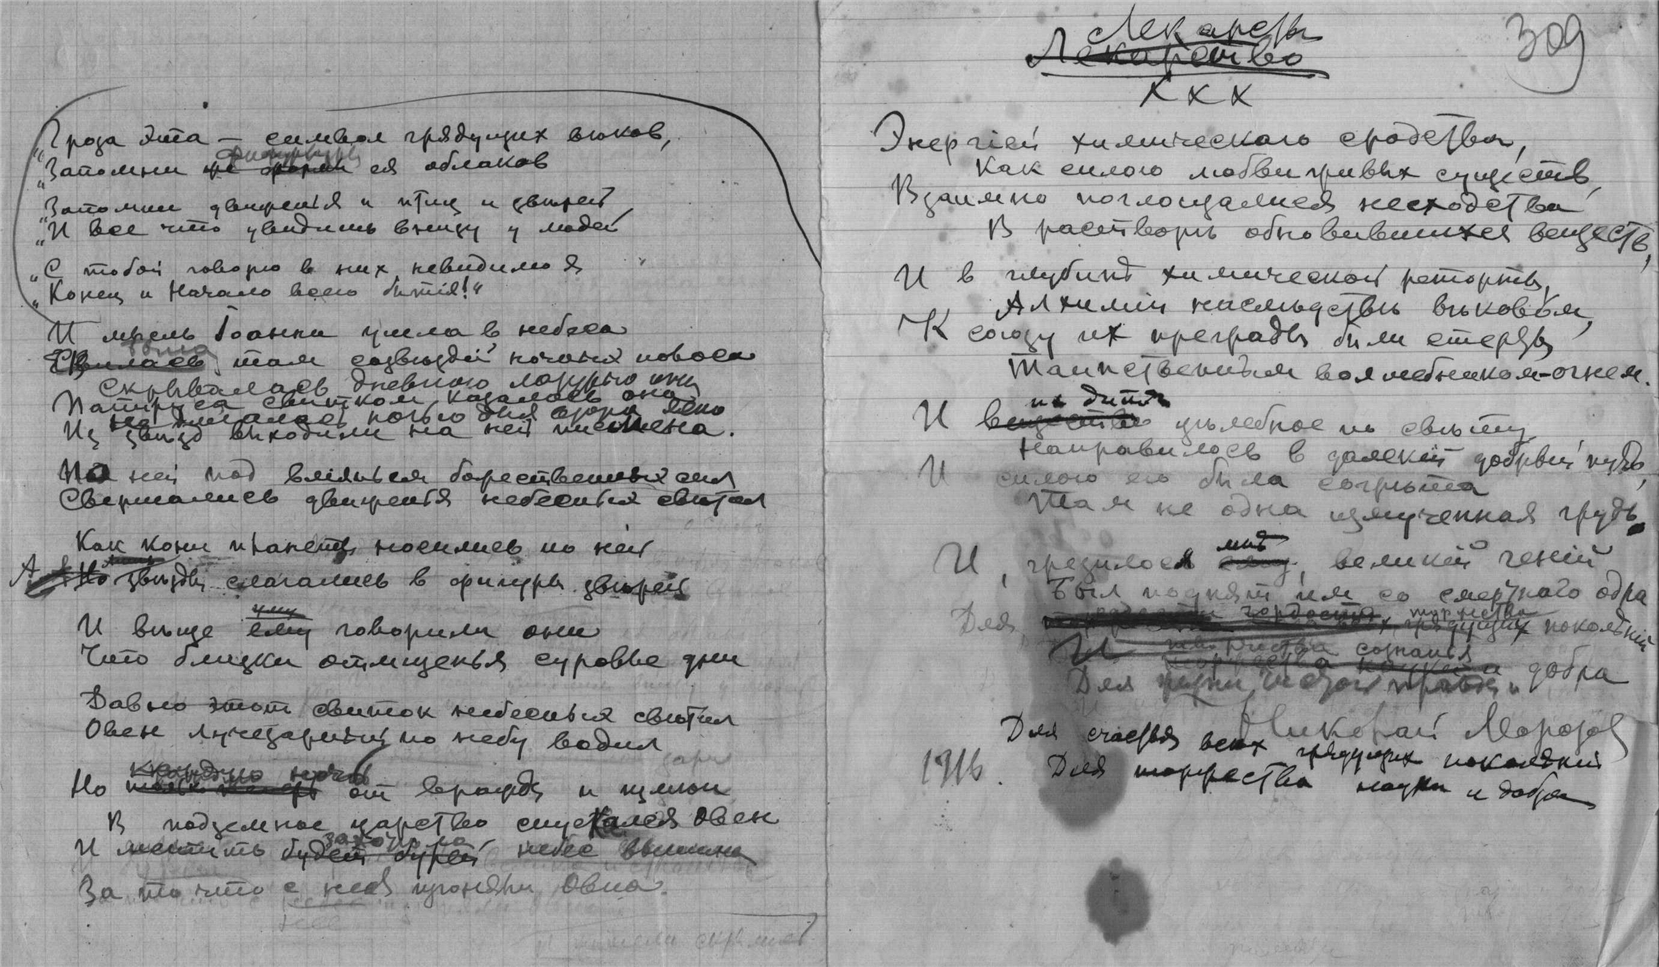 „Гроза эта — символ грядущих вѣков,
„Запомни фигуры ея облаков
„Запомни движенія и птиц и звѣрей,
„И все что увидишь внизу у людей
„С тобой говорю в них невидимо я
„Конец и Начало всего бытія!“
И мысль Іоанна ушла в небеса
Была там созвѣздій ночных полоса
Скрывалась дневною лазурью она
Папируса свитком казалась она
Из звѣзд выходили на ней письмена.
На ней под вліяньем божественных сил
Свершались движенія небесных свѣтил
Как кони планеты носились по ней
А звѣзды слагались в фигуры звѣрей
И вѣще ему говорили они
Что близки отмщенья суровые дни
Давно этот свиток небесных свѣтил
Овен лучезарный по небу водил
Но каждую ночь от вражды и измѣн
В подземное царство спускался Овен
И мстить небес вышина
За то что с нея прогнали Овна.
309
Лекарство
Лекарство
х х х
Энергіей химическаго сродства,
Как силою любви живых существ,
Взаимно поглощалися несходства
В растворѣ обновившихся веществ,
И в глубинѣ химической реторты,
Алхиміи наслѣдствѣ вѣковом,
К союзу их преграды были стерты
Таинственным волшебником-огнем.
И цѣлебное по свѣту
Направилось в далекій добрый путь,
И силою его была согрѣта
Там не одна измученная грудь.
И, грезилося мнѣ, великій геній
Был поднят им со смертнаго одра
Для грядущих поколѣній
И торжества сознанья
Для добра
Николай Морозов
Для счастья всех грядущих поколѣній
1916. Для торжества науки и добра